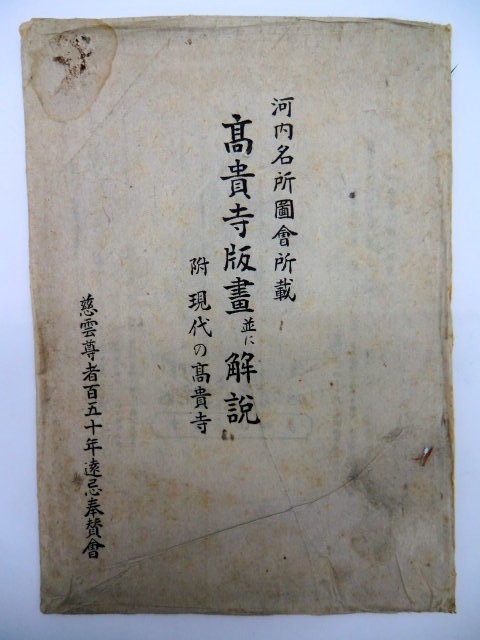 河内名所圖會所載
髙貴寺版畫並に解説
附 現代の髙貴寺
慈雲尊者百五十年遠忌奉賛會